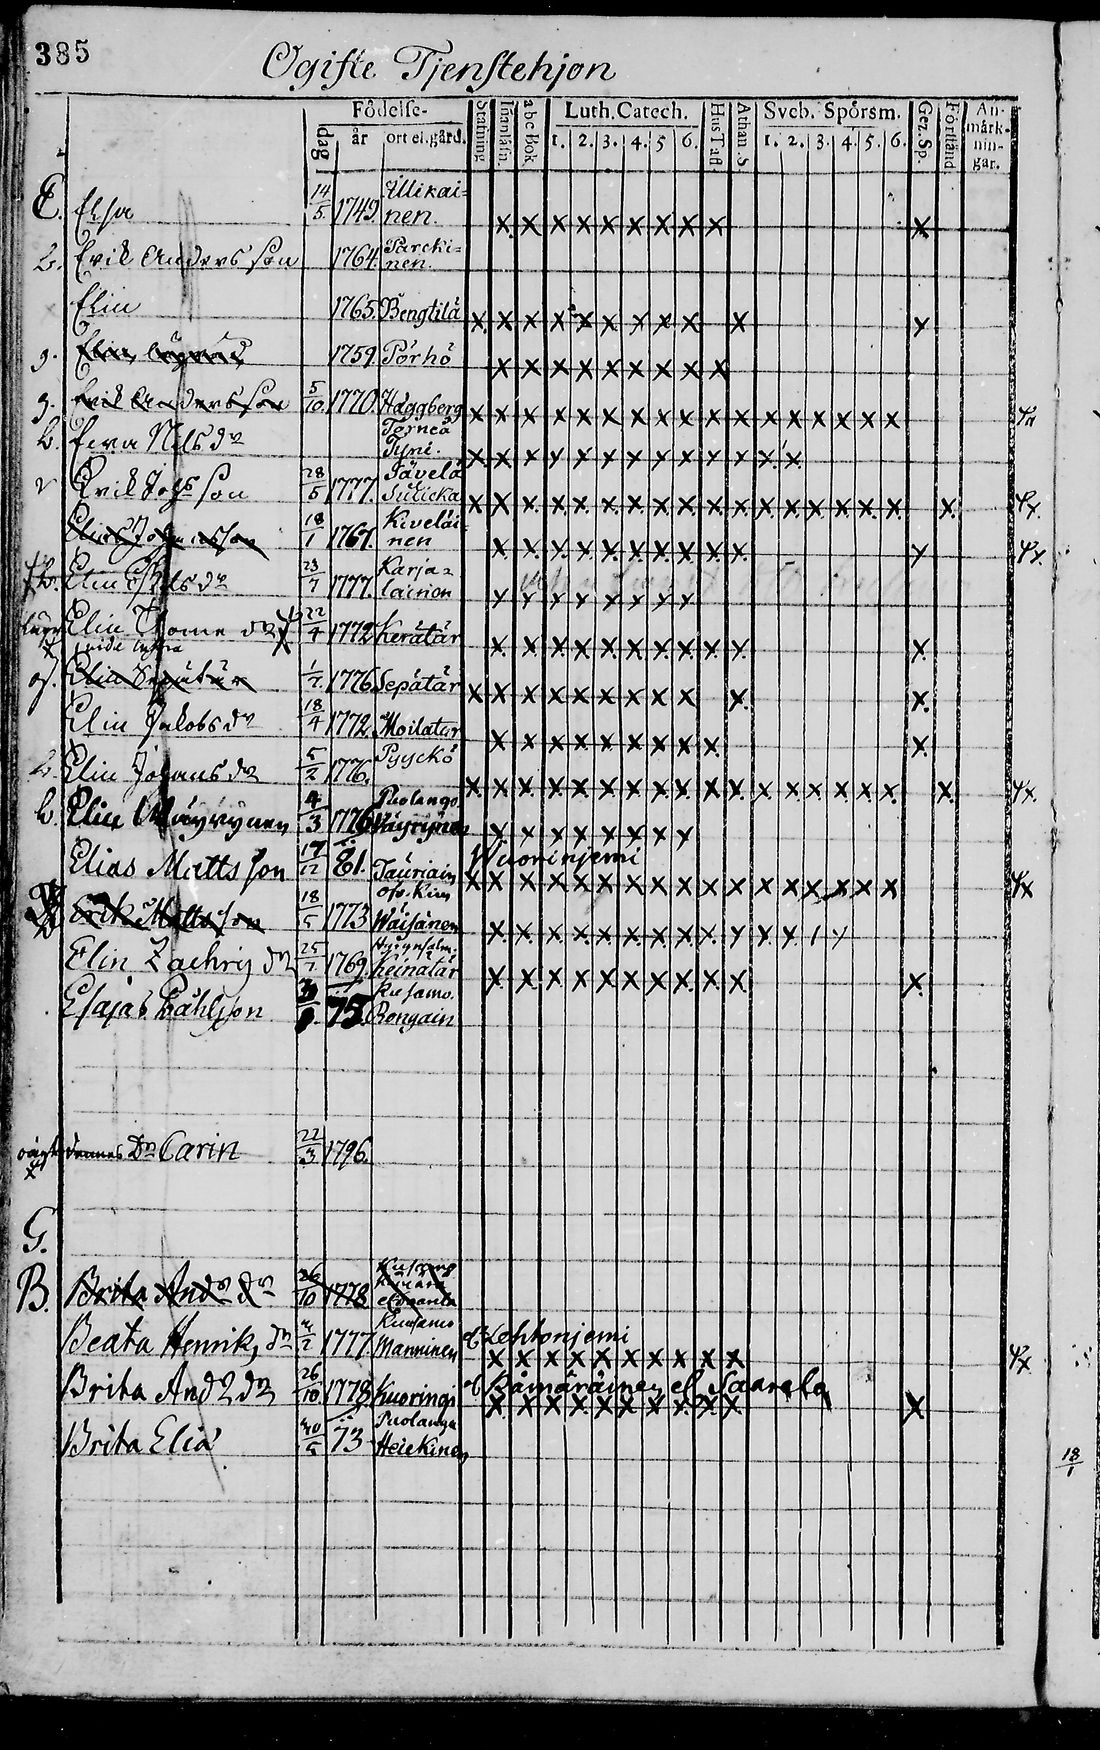 385
Ogifte Tjenstehjon
Födelse-
dag
år
ort el. gård.
Stafning
Innanläsn.
abc Bok
Luth. Catech.
1. 2. 3. 4. 5 6.
Hus Tafl.
Athan. S.
Sveb. Spörsm.
1. 2. 3. 4. 5. 6.
Gez. Sp.
Förstånd.
An-
märk-
nin-
gar.
E. Elsa 14/5 1749. Illikai=
nen. x x x x x x x x x x
b. Erik Anders son 1764. Parcki=
nen.
Elin 1765. Bengtilä x x x x x x x x x x x
g. Elin 1759 Pörhö x x x x x x x x x
g. Erik Andersson 5/10 1770. Häggberg x x x x x x x x x x x x x x x x x
b. Ewa Nils dr Torneå
Tyni. x x x y x x x x x x x x x
Erik Joh son 28/5 1777. Jävelä
x x x x x x x x x x x x x x x x x x 4x.
18/1 1761. Kiveläi=
nen x x y x x x x x x x y 4x.
Elin Nils dr 23/7 1777. Karja=
lainen x y y y x y x y
Elin Thome dr 22/4 1772 Kerätär x x x x x x x x x y. x
vide infra
Elin Sepätär 1/7 1776 Sepätär x x x x x x x x x x x
Elin Jakobs dr 18/4 1772 Moilatar x x x x x x x x x x
b. Elin Johans dr 5/2 1776. Pyyckö x x x x x x x x x x x x x x x x x x 4x.
b. Elin Wäyrynen 4/3 1776 Puolango
Wäyrynen x x x x x x x y
Elias Matts son 17/12 81. Wuorinjemi
Tauriain x x x x x x x x x x x x x x x x x 4x
Erik Mattsson 18/5 1773 Wäisänen x x x x x x x x x y y y 1 y
Elin Zachris dr 25/7 1769. Hyrynsalm.
Keinätär x x x x x x x x x x x
Esajas Påhlson 30/9. 75. Kusamo.
Rongain
dennes Dr Carin 22/3 1796.
G.
B. Brita Andr dr 26/10 1778 Kusamo
Beata Henriks dr 1777. Kusamo
Manninen Lehtonjemi
x x x x x x x x x x 4x
Brita Andr dr 26/10 1778 Kuoringi Bämäräinen el. Saarela
x x x x x x x x x x x
Brita Eliä 30/5 73 Puolango
Heickinen
18/1